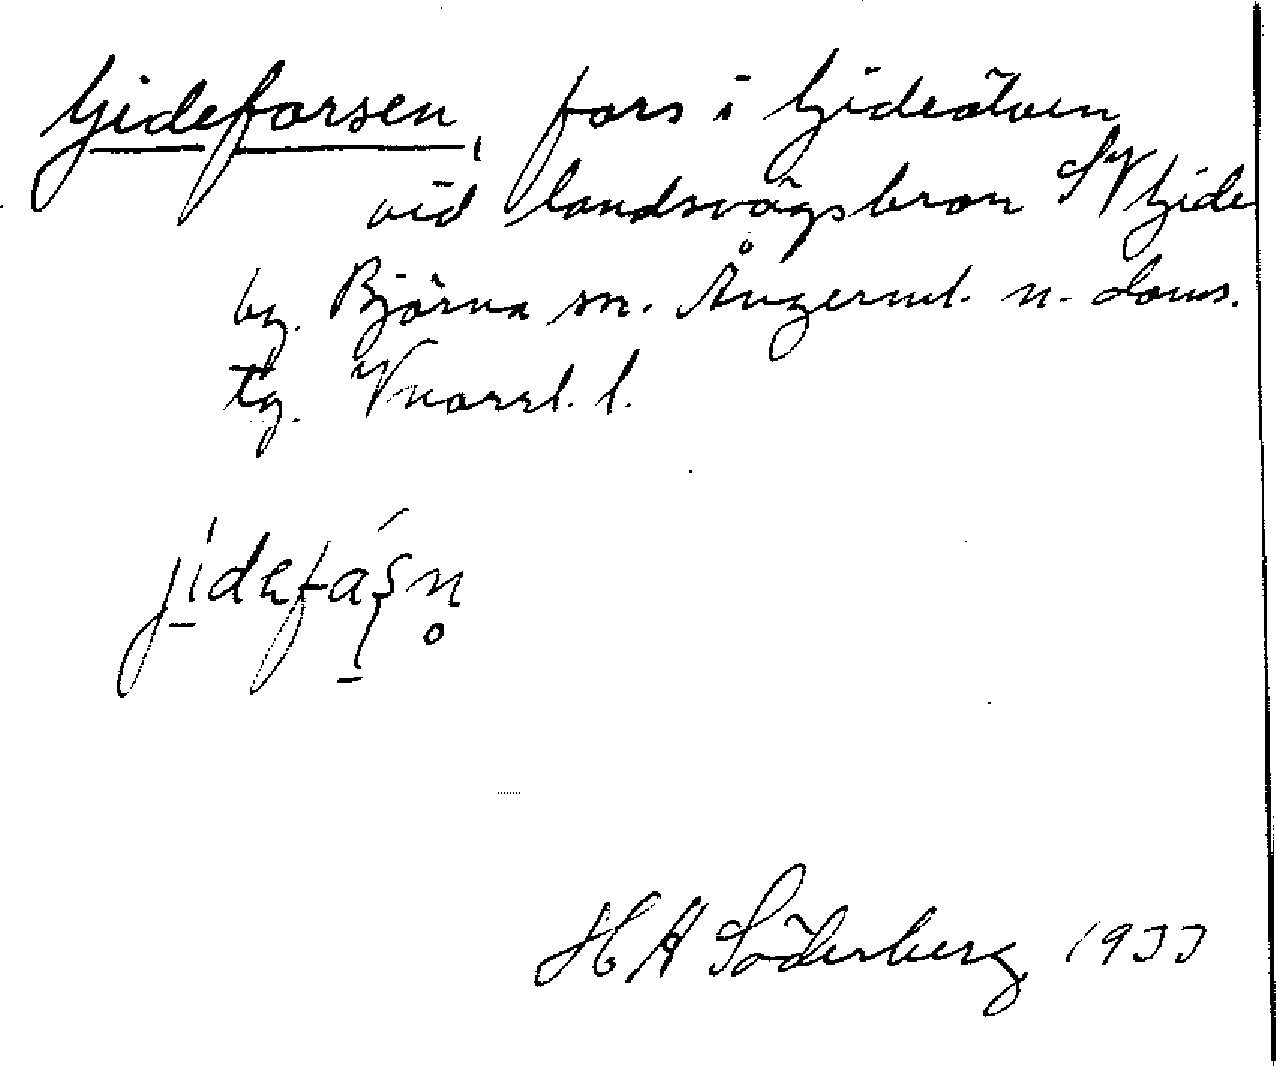 Gideforsen, fors i Gideälven
vid landsvägsbron SV Gide
by. Björna sn. Ångerml. n. doms.
tg. Vnorrl. l.
jidefáʂn̥
H A Söderberg 1933